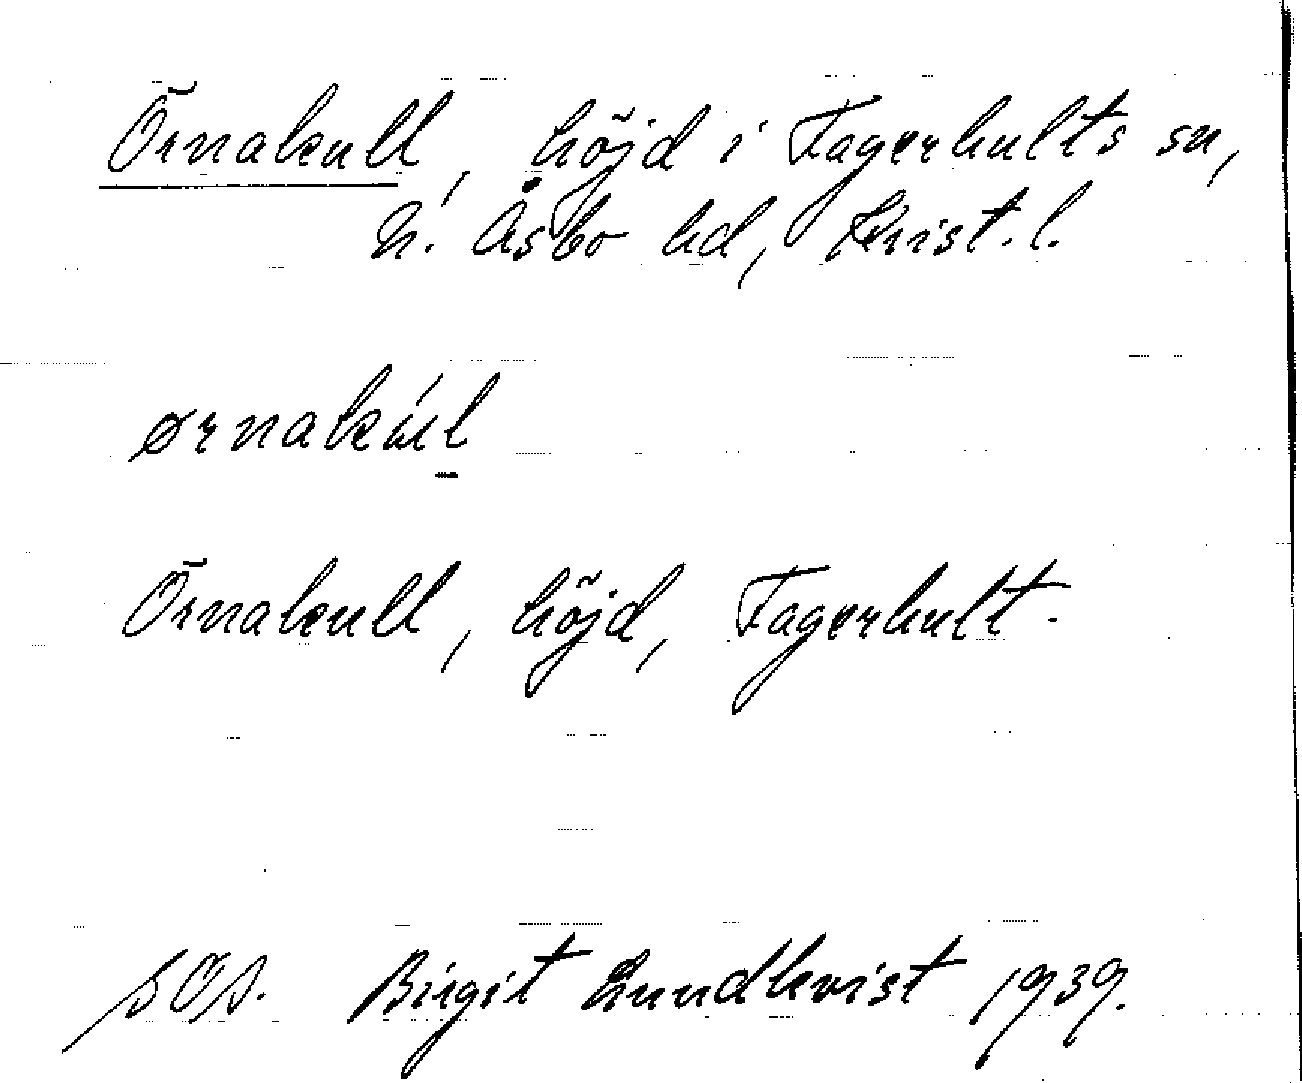 Örnakull, höjd i Fagerhults sn,
N. Åsbo hd, Krist. l.
ørnakúl
Örnakull, höjd, Fagerhult.
SOA. Birgit Lundkvist 1939.